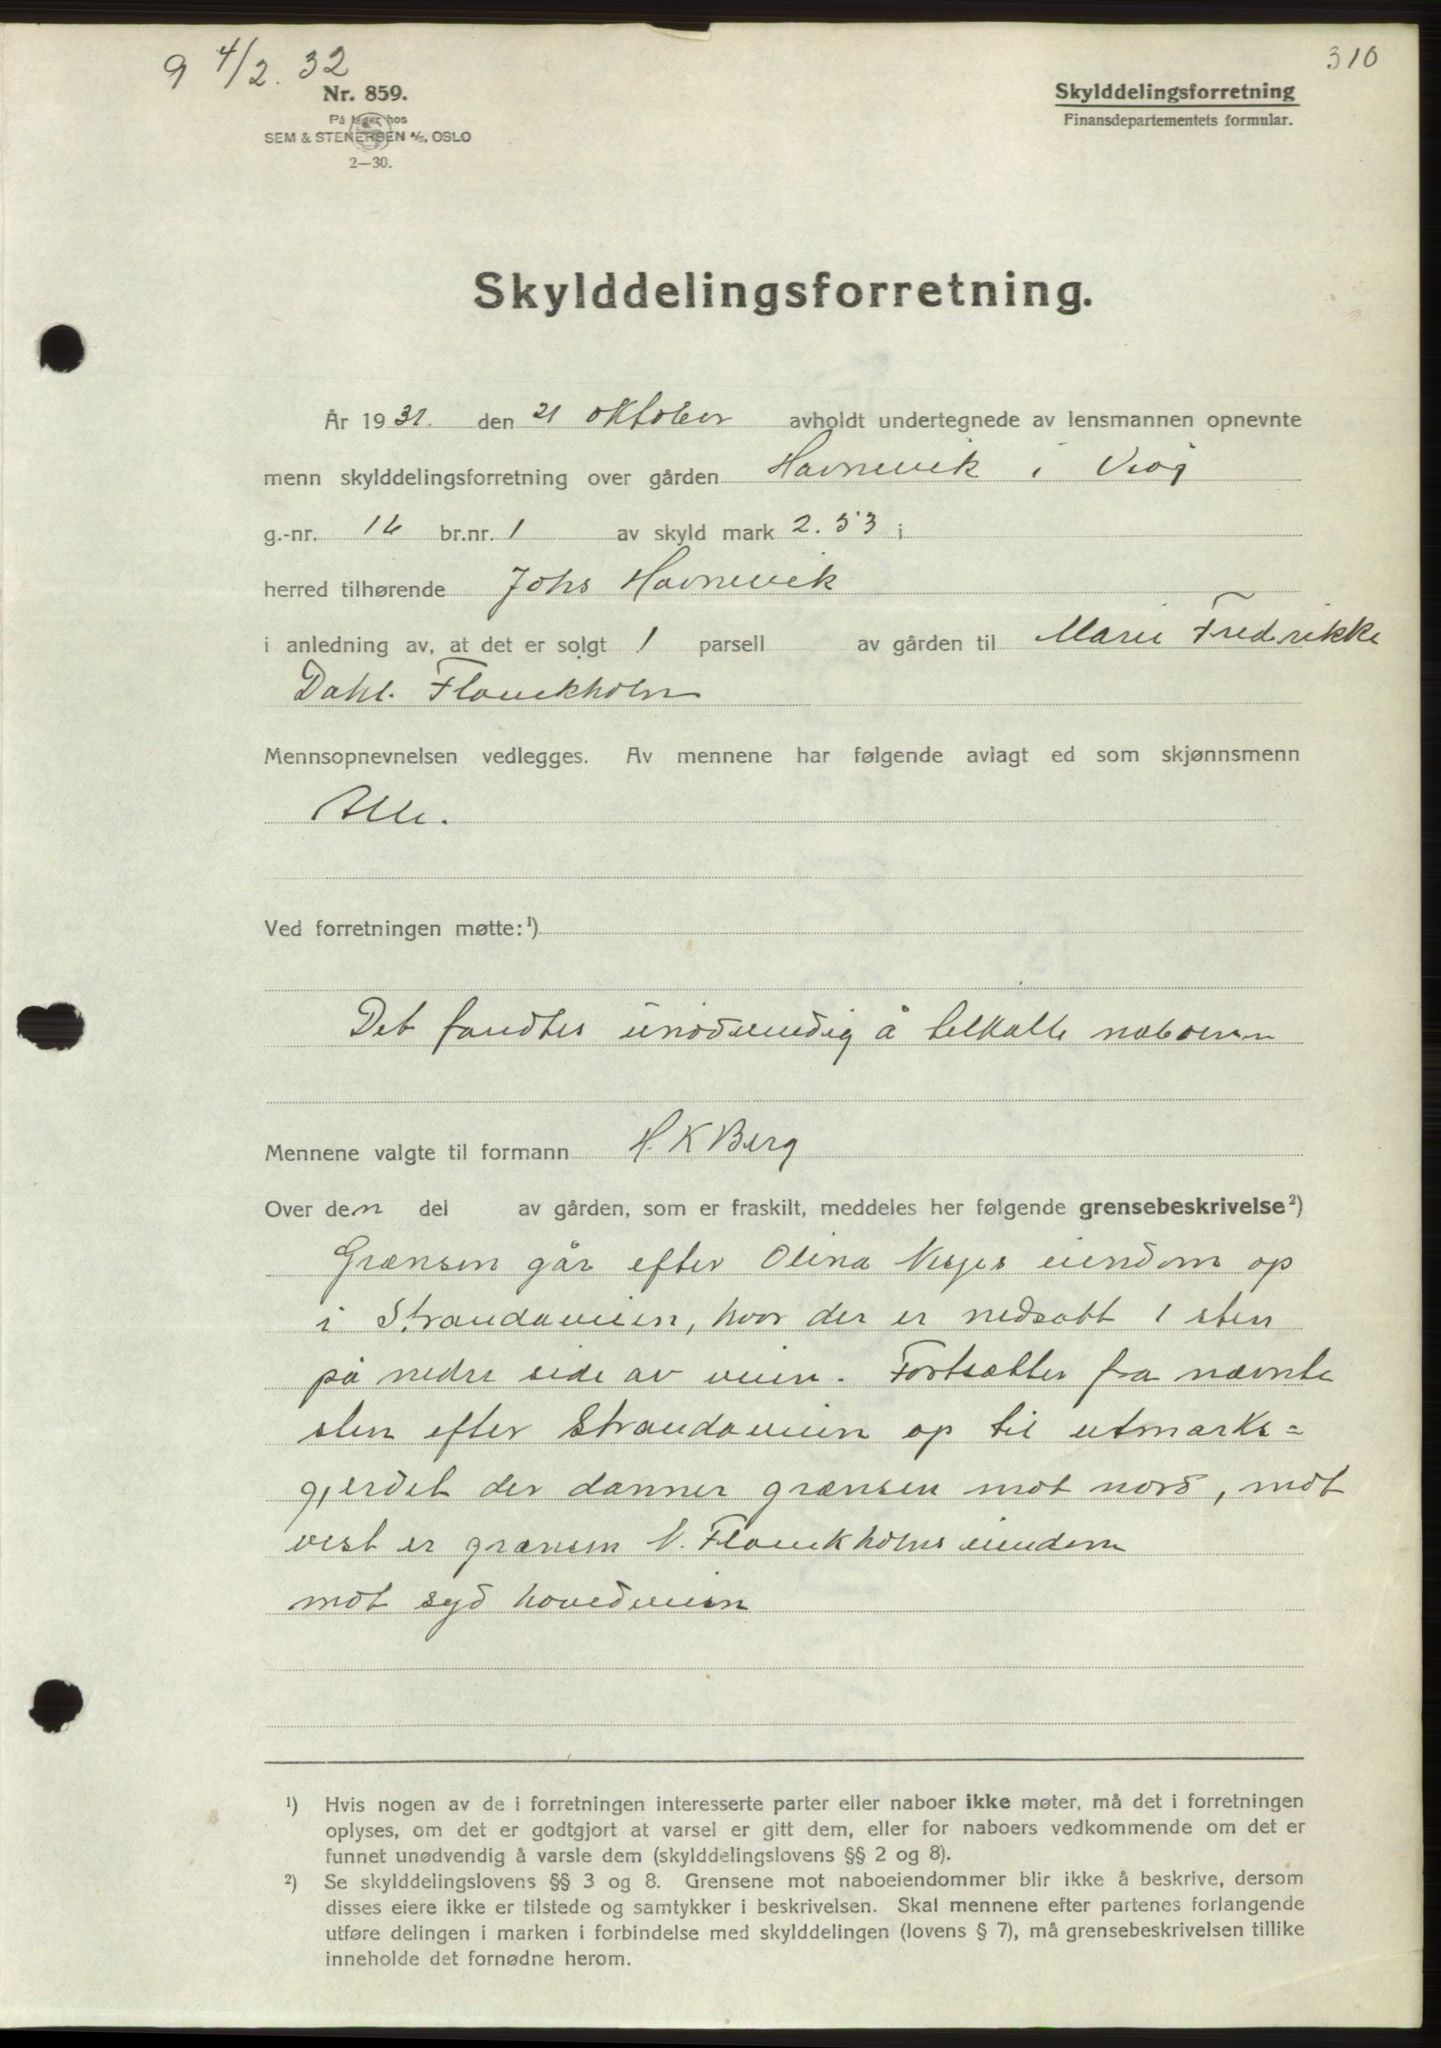 9 4/2. 32
310
Nr. 859.
På lager hos
SEM & STENERSEN A/S, OSLO
2—30.
Skylddelingsforretning
Finansdepartementets formular.
Skylddelingsforretning.
År 1931. den 21 oktober avholdt undertegnede av lensmannen opnevnte
menn skylddelingsforretning over gården Havnevik i Vigg
g.-nr. 16 br.nr. 1 av skyld mark 2.53 i
herred tilhørende Johs Havnevik
i anledning av, at det er solgt 1 parsell av gården til Marie Fredrikke
Dahl. Flauekholm
Mennsopnevnelsen vedlegges. Av mennene har følgende avlagt ed som skjønnsmenn
Alle.
Ved forretningen møtte:¹)
Det fandtes unødvendig å tilkalle naboerne
Mennene valgte til formann H. K Berg
Over den del av gården, som er fraskilt, meddeles her følgende grensebeskrivelse²)
Grænsen går efter Olina eiendom op
i Strandaveien, hvor der er nedsatt 1 sten
på nedre side av veien. Fortsætter fra nævnte
sten efter Strandaveien op til utmarks=
gjerdet der danner grænsen mot nord, mot
vest er grænsen Flauekholms eiendom
mot syd hovedveien
¹) Hvis nogen av de i forretningen interesserte parter eller naboer ikke møter, må det i forretningen
oplyses, om det er godtgjort at varsel er gitt dem, eller for naboers vedkommende om det er
funnet unødvendig å varsle dem (skylddelingslovens §§ 2 og 8).
²) Se skylddelingslovens §§ 3 og 8. Grensene mot naboeiendommer blir ikke å beskrive, dersom
disses eiere ikke er tilstede og samtykker i beskrivelsen. Skal mennene efter partenes forlangende
utføre delingen i marken i forbindelse med skylddelingen (lovens § 7), må grensebeskrivelsen tillike
inneholde det fornødne herom.